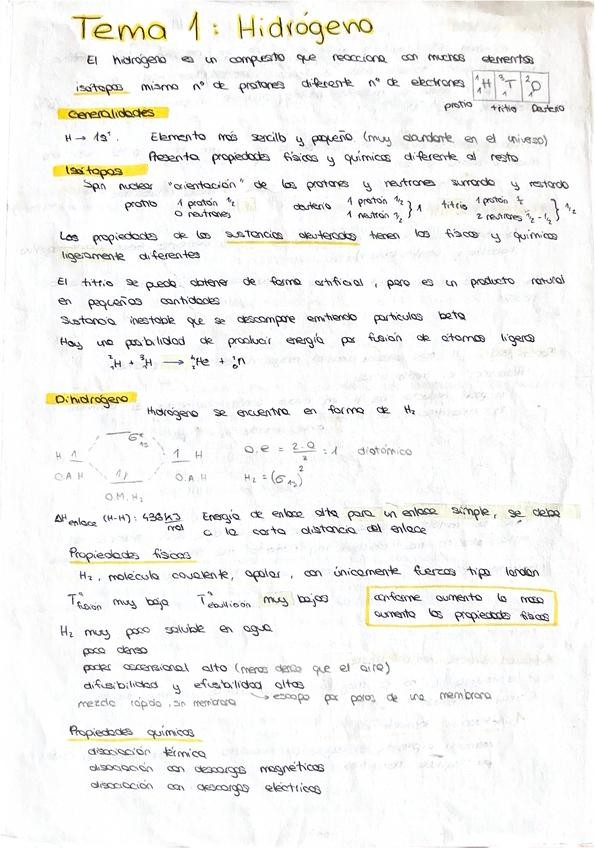 Tema 1: Hidrógeno
El hidrógeno es un compuesto que reacciona con muchos elementos
isótopos mismo nº de protones diferente nº de electrones ¹₁H ³₁T ²₁D
protio tritio Deuterio
Generalidades
H → 1s¹. Elemento más sencillo y pequeño (muy abundante en el universo)
Presenta propiedades físicas y químicas diferente al resto
Isótopos
Spin nuclear "orientación" de los protones y neutrones sumando y restando
protio 1 protón ½ deuterio 1 protón ½ } 1 tritio 1 protón ½ } ½
0 neutrones 1 neutrón ½ 2 neutrones ½ -½
Las propiedades de las sustancias deuteradas tienen las físicas y químicas
ligeramente diferentes
El tritio se puede obtener de forma artificial, pero es un producto natural
en pequeñas cantidades
Sustancia inestable que se descompone emitiendo partículas beta
Hay una posibilidad de producir energía por fusión de átomos ligeros
²₁H + ³₁H → ⁴₂He + ¹₀n
Dihidrógeno
Hidrógeno se encuentra en forma de H₂
σ*₁ₛ
H 1 1 H O.e = 2-0/2 = 1 diatómico
O.A H 1↓ O.A.H H₂ = (σ₁ₛ)²
O.M. H₂
ΔH enlace (H-H): 436 kJ/mol Energía de enlace alta para un enlace simple, se debe
a la corta distancia del enlace
Propiedades físicas
H₂, molécula covalente, apolar, con únicamente fuerzas tipo london
Tª fusión muy baja Tª ebullición muy bajas
conforme aumenta la masa
aumenta las propiedades físicas
H₂ muy poco soluble en agua
poco denso
poder ascensional alto (menos denso que el aire)
difusibilidad y efusibilidad altas
mezcla rápida sin membrana → escapa por poros de una membrana
Propiedades químicas
disociación térmica
disociación con descargas magnéticas
disociación con descargas eléctricas